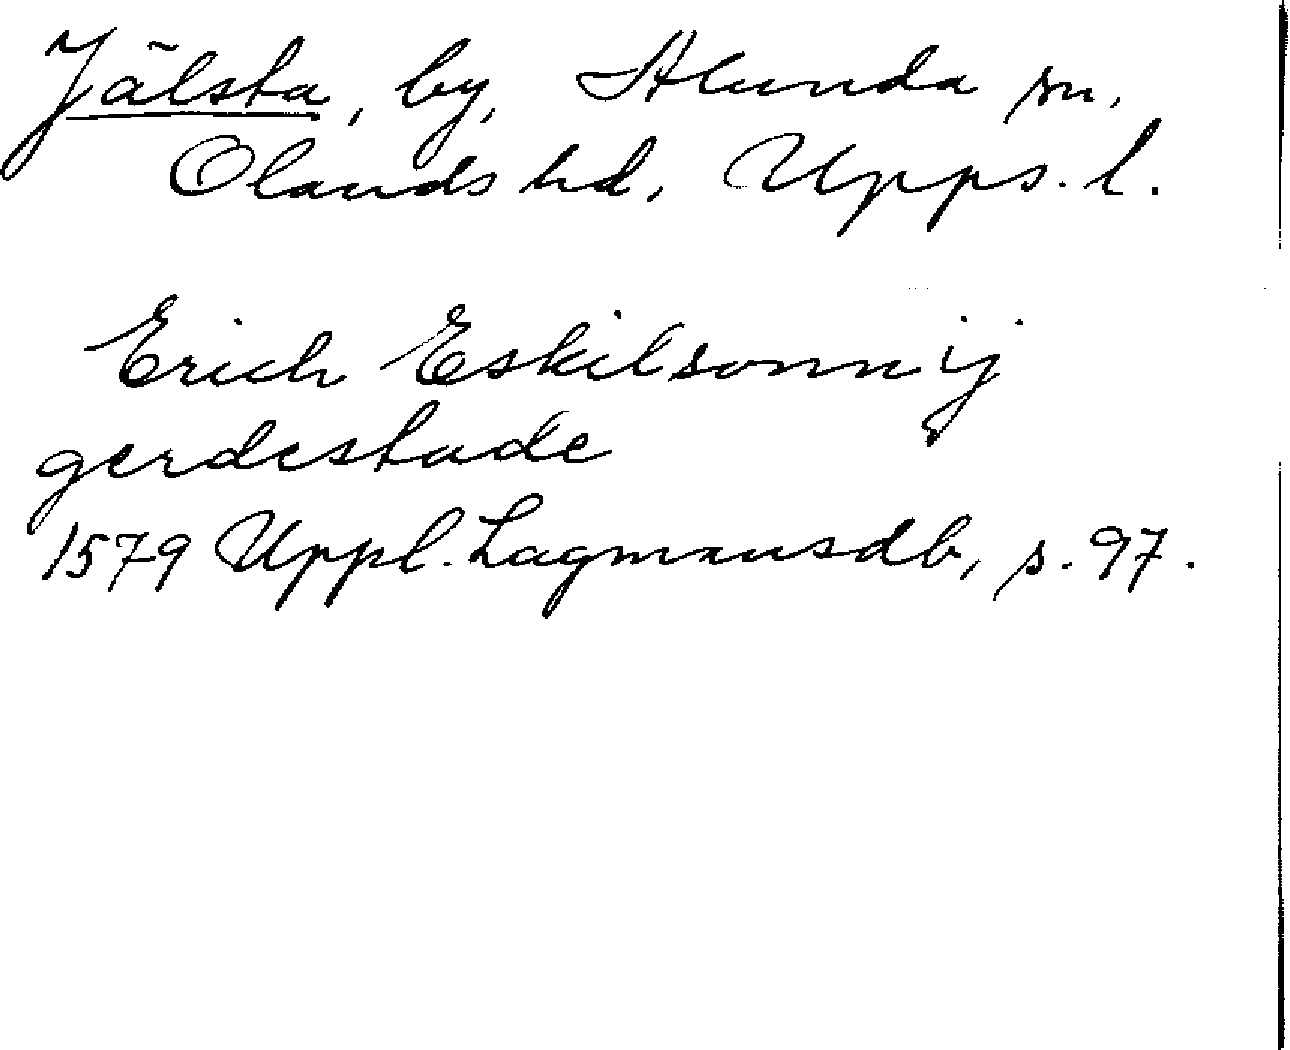 Jälsta, by, Alunda sn,
Olands hd, Upps. l.
Erich Eskilsonn ij
gerdestade
1579 Uppl. Lagmansdb, s. 97.